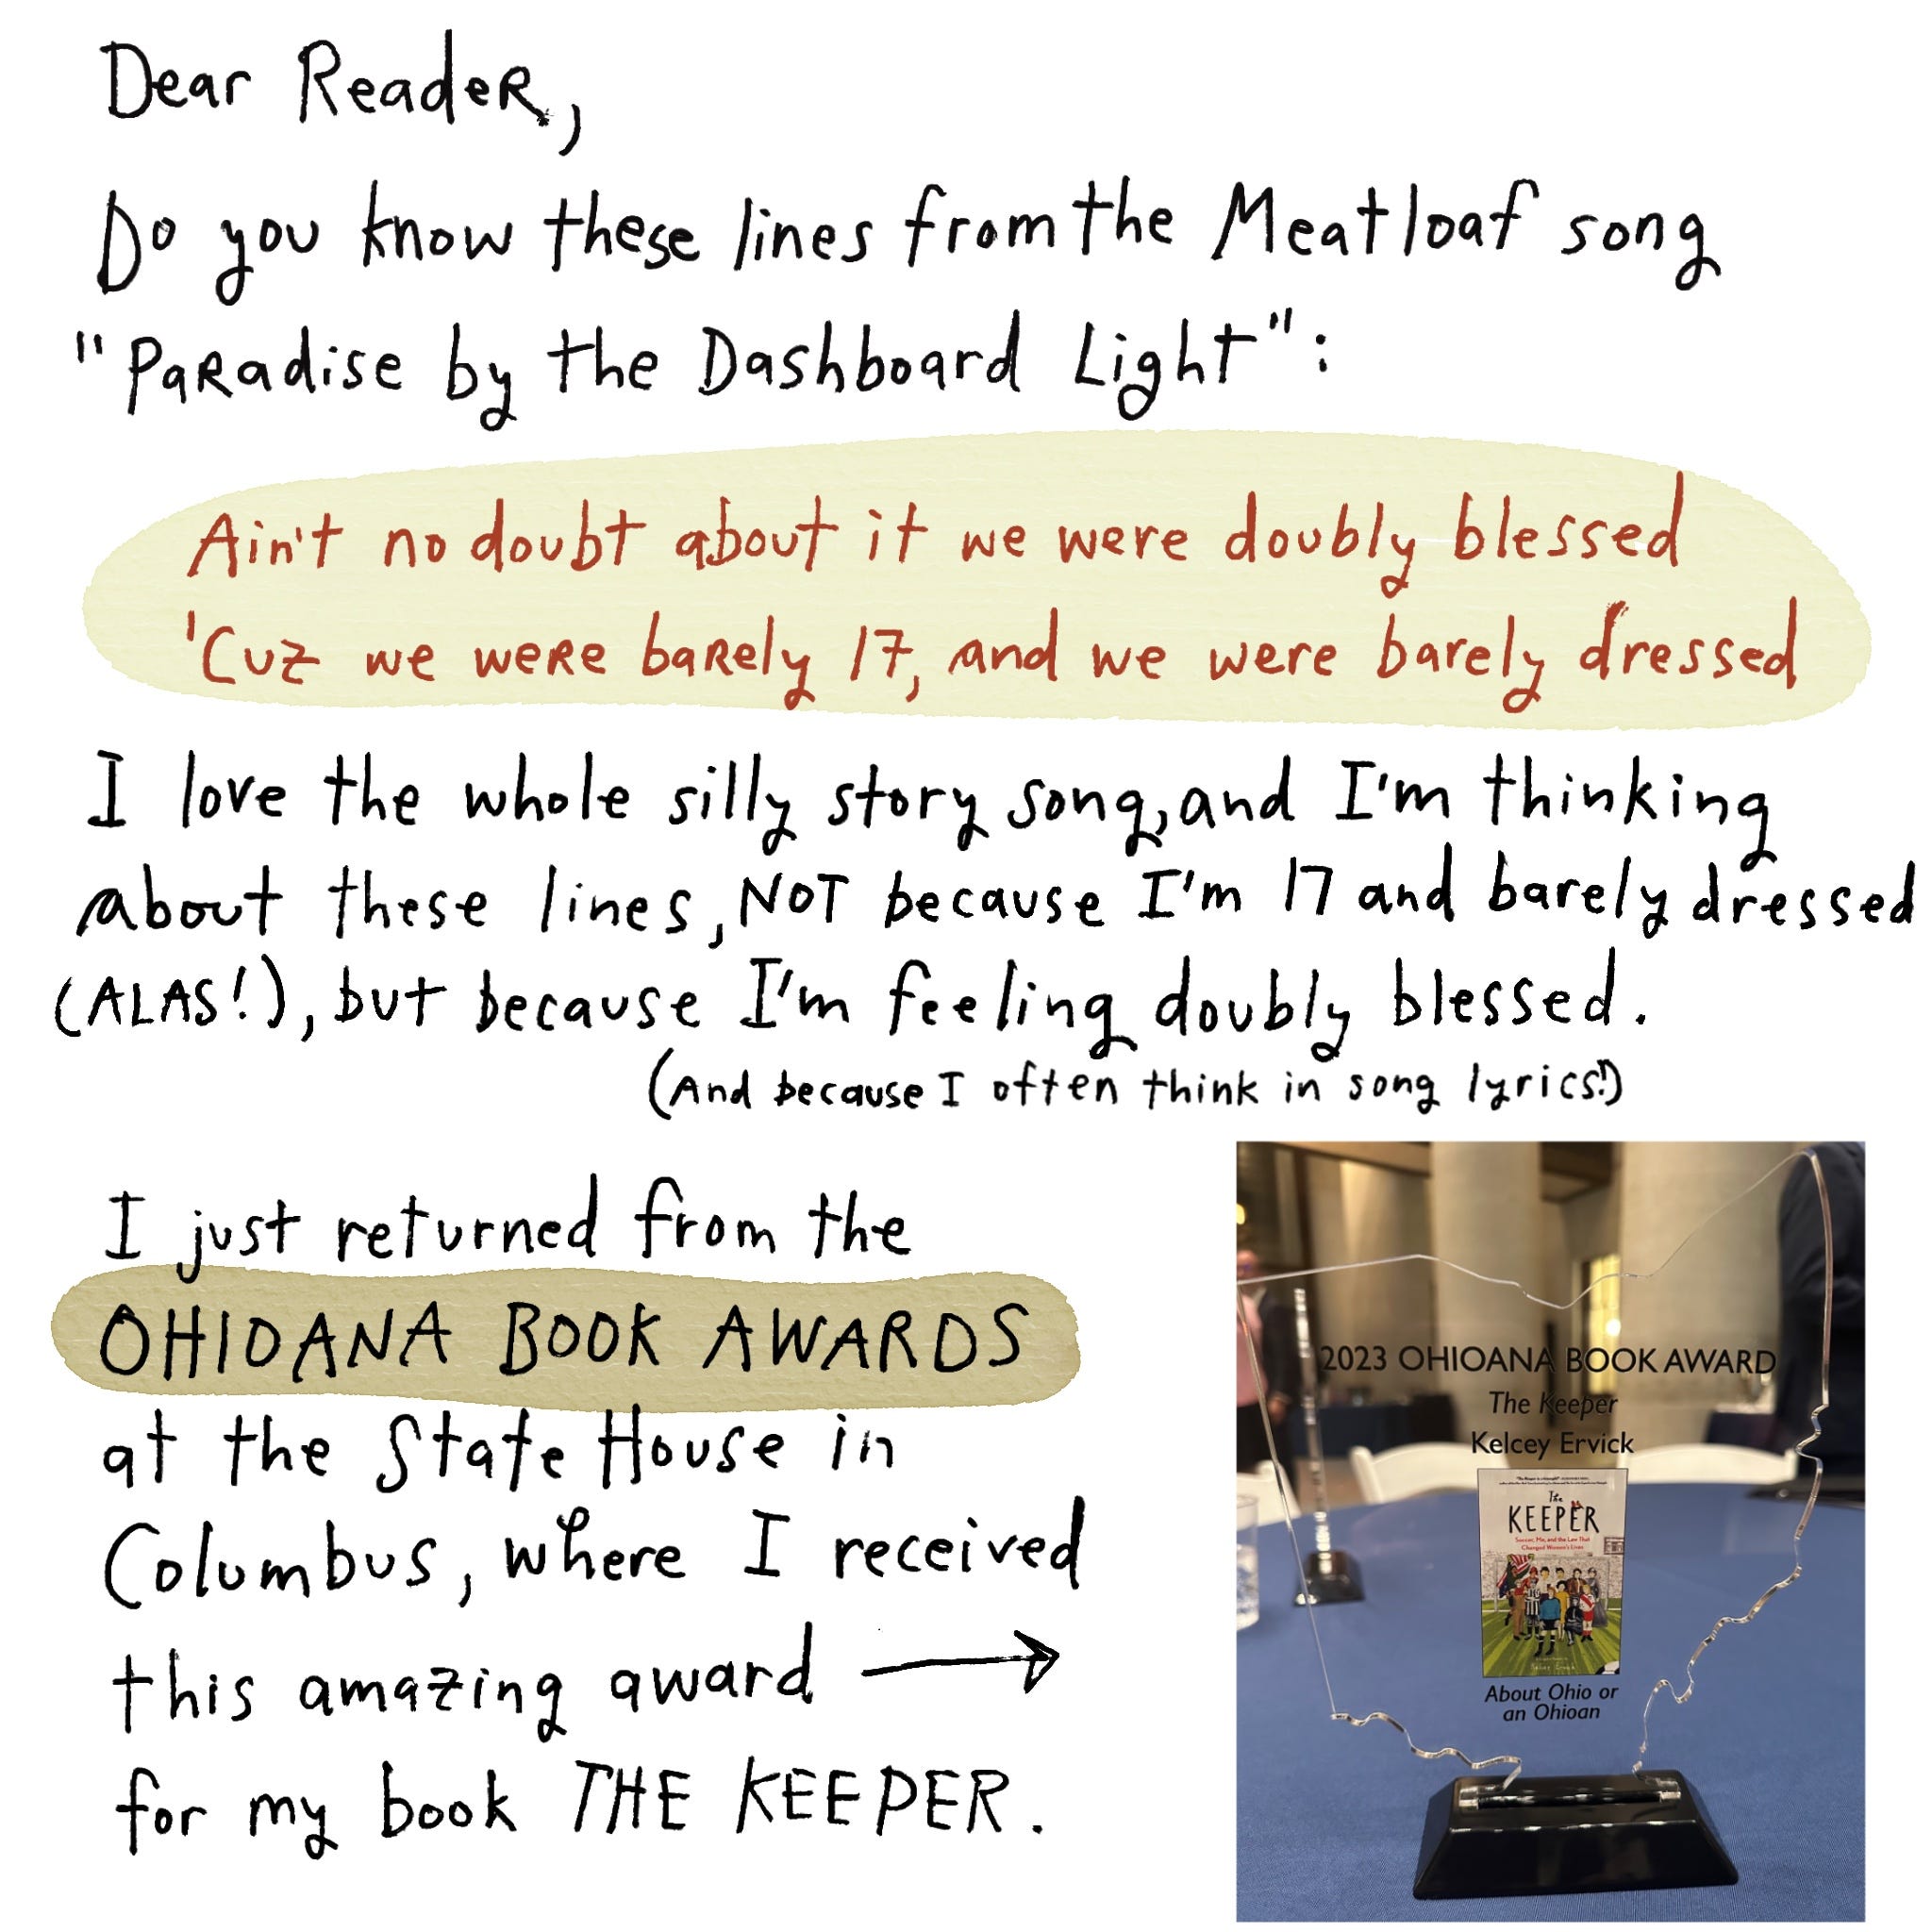 Dear Reader,
Do you know these lines from the Meatloaf song
"Paradise by the Dashboard Light":
Ain't no doubt about it we were doubly blessed
'Cuz we were barely 17, and we were barely dressed
I love the whole silly story song, and I'm thinking
about these lines, NOT because I'm 17 and barely dressed
(ALAS!), but because I'm feeling doubly blessed.
(And because I often think in song lyrics!)
I just returned from the
OHIOANA BOOK AWARDS
at the State House in
Columbus, where I received
this amazing award
for my book THE KEEPER.
2023 OHIOANA BOOK AWARD
The Keeper
Kelcey Ervick
The
KEEPER
Soccer, Me, and the Law That
Changed Women's Lives
Kelcey Ervick
About Ohio or
an Ohioan